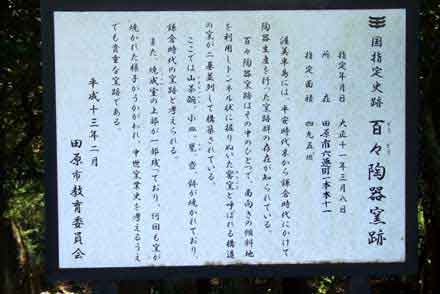 国指定史跡 百々陶器窯跡
どうどうとうきかまあと
指定年月日 大正十一年三月八日
所在 田原市六連町一本木十一
指定面積 四九五㎡
渥美半島には、平安時代末から鎌倉時代にかけて
陶器生産を行った窯跡群の存在が知られている。
百々陶器窯跡はその中のひとつで、南向きの傾斜地
を利用しトンネル状に掘りぬいた窖窯と呼ばれる構造
の窯が二基並列して構築されている。
ここでは山茶碗、小皿、甕、壺、鉢が焼かれており、
鎌倉時代の窯跡と考えられる。
また、焼成室の上部が一部残っており、何回も窯が
焼かれた様子がうかがわれ、中世窯業史を考えるうえ
でも貴重な窯跡である。
平成十三年二月
田原市教育委員会